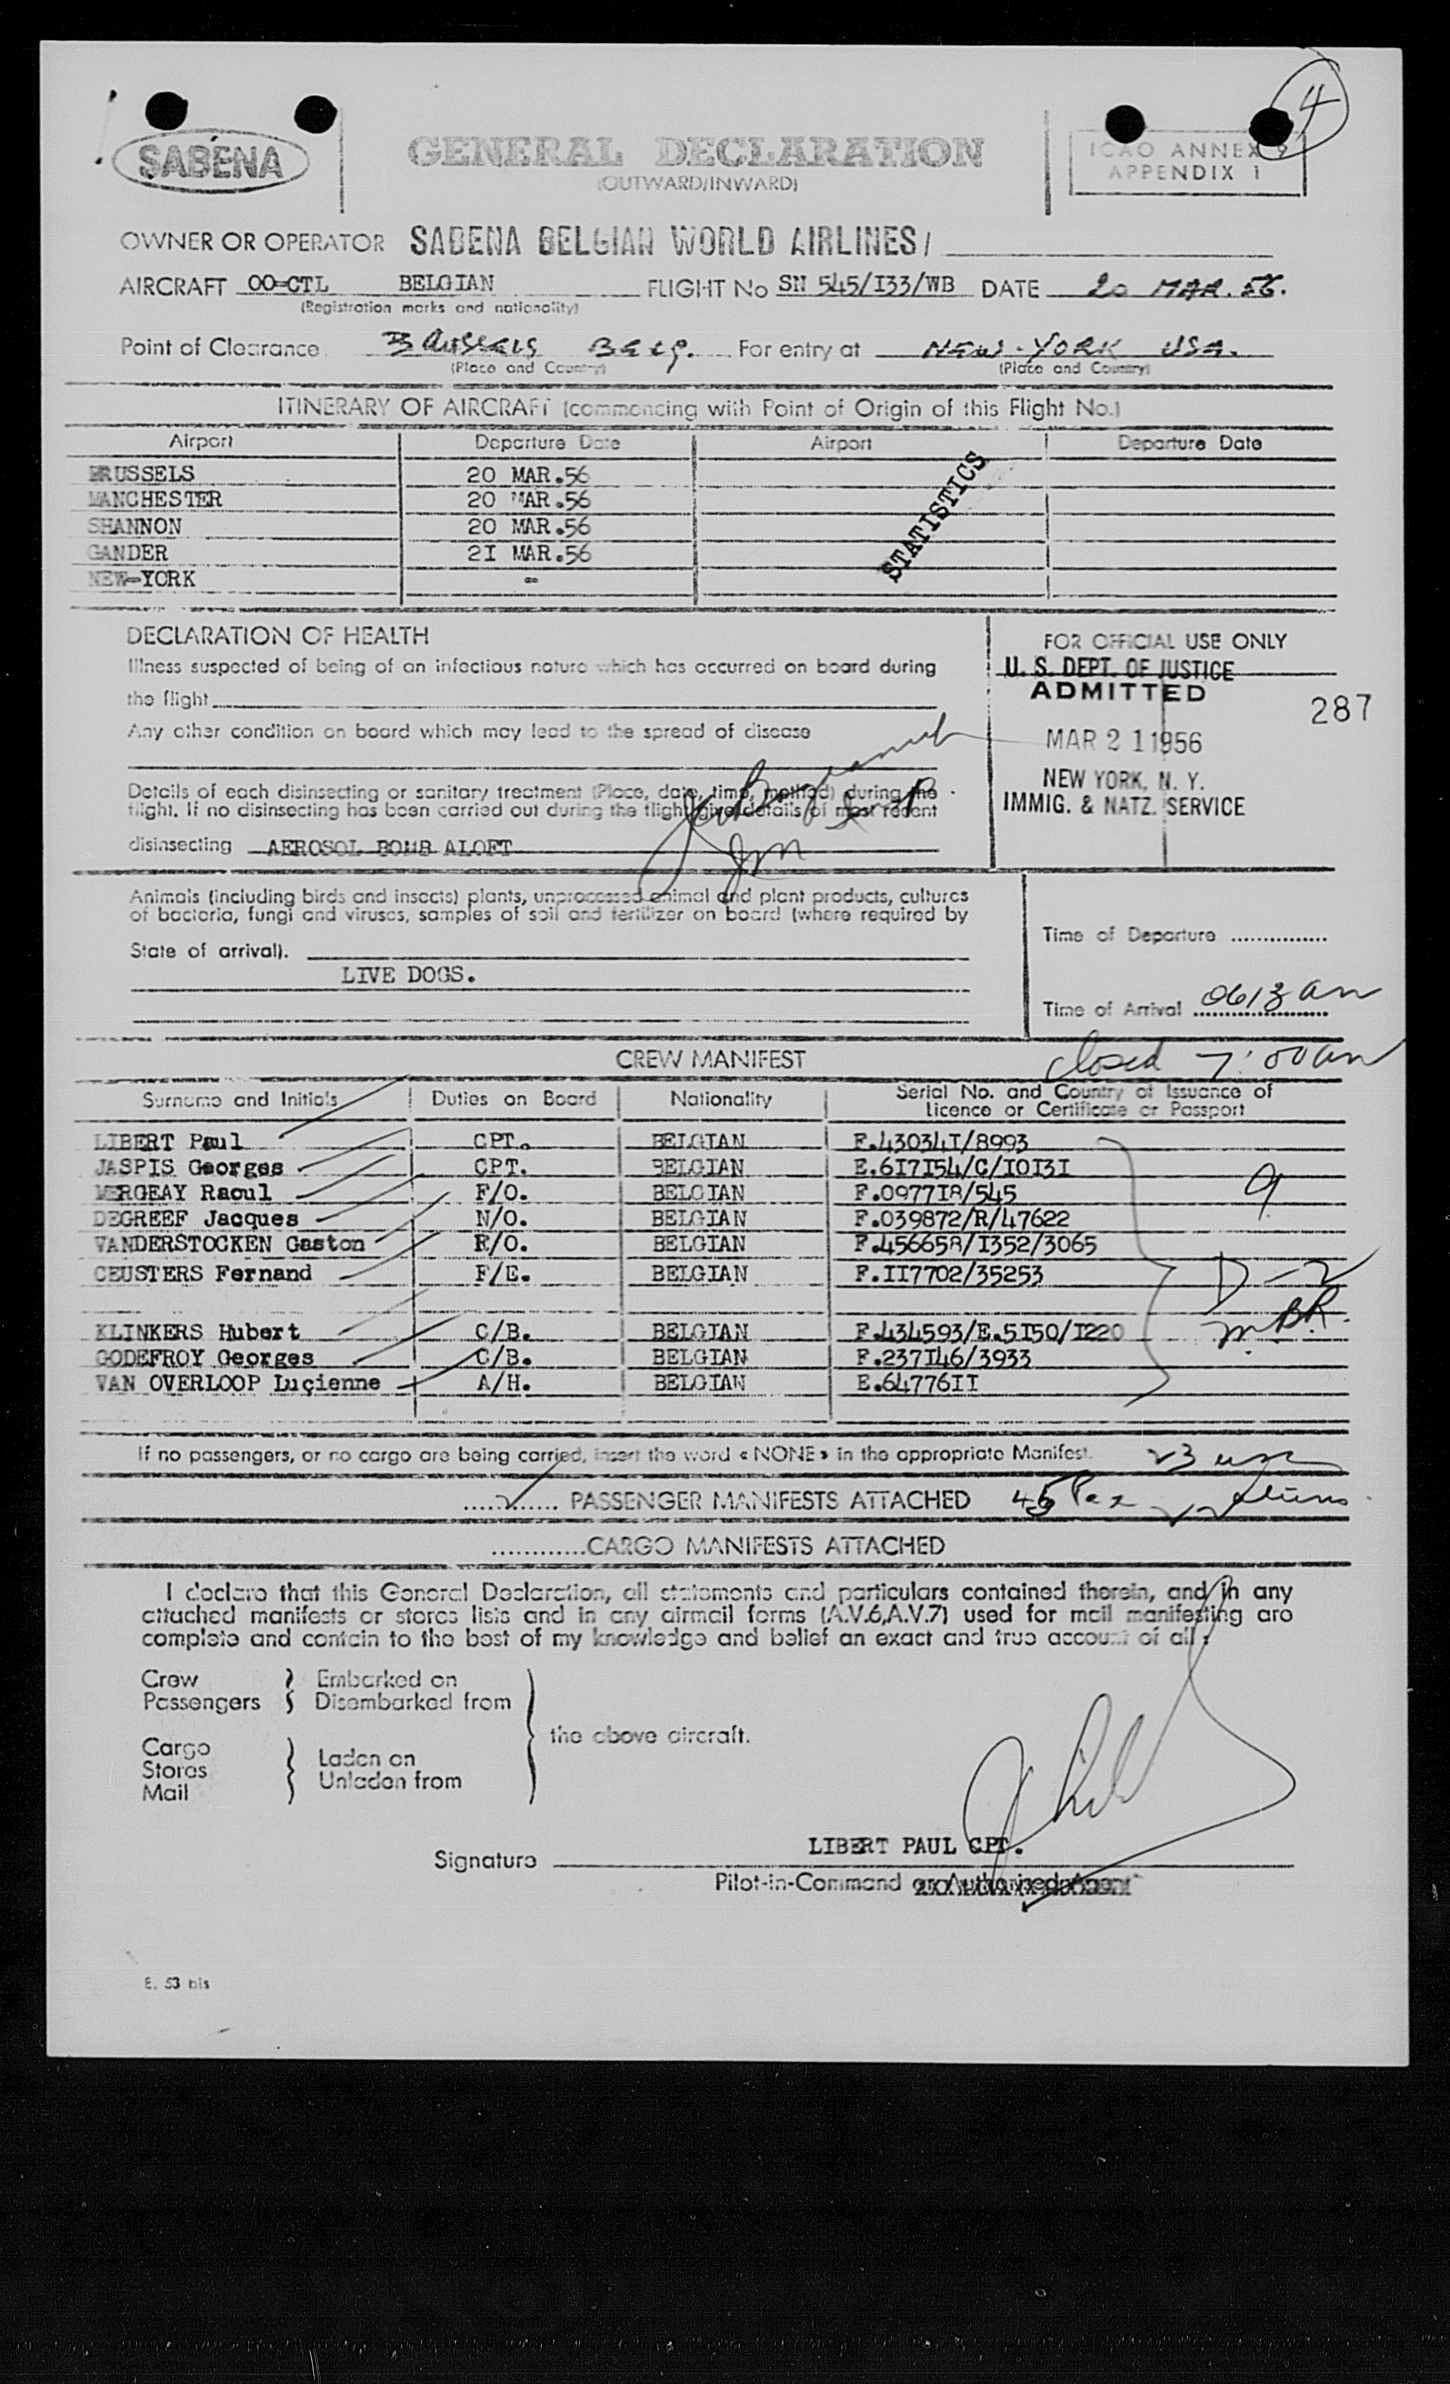 4
SABENA
GENERAL DECLARATION
(OUTWARD/INWARD)
ICAO ANNEX 9
APPENDIX 1
OWNER OR OPERATOR SABENA BELGIAN WORLD AIRLINES/
AIRCRAFT OO-CTL BELGIAN FLIGHT No SN 545/I33/WB DATE 20 MAR. 56.
(Registration marks and nationality)
Point of Clearance Brussels Belg. For entry at NEW-YORK USA.
(Place and Country) (Place and Country)
ITINERARY OF AIRCRAFT (commencing with Point of Origin of this Flight No.)
Airport Departure Date Airport Departure Date
BRUSSELS 20 MAR.56
MANCHESTER 20 MAR.56
SHANNON 20 MAR.56
GANDER 2I MAR.56
NEW-YORK -
STATISTICS
DECLARATION OF HEALTH
Illness suspected of being of an infectious nature which has occurred on board during
the flight
Any other condition on board which may lead to the spread of disease
Details of each disinsecting or sanitary treatment (Place, date, time, method) during the
flight. If no disinsecting has been carried out during the flight give details of most recent
disinsecting AEROSOL BOMB ALOFT
FOR OFFICIAL USE ONLY
U. S. DEPT. OF JUSTICE
ADMITTED
287
MAR 21 1956
NEW YORK, N. Y.
IMMIG. & NATZ. SERVICE
Animals (including birds and insects) plants, unprocessed animal and plant products, cultures
of bacteria, fungi and viruses, samples of soil and fertilizer on board (where required by
State of arrival).
LIVE DOGS.
Time of Departure ...............
Time of Arrival 0613 am
closed 7:00 am
CREW MANIFEST
Surname and Initials Duties on Board Nationality Serial No. and Country of Issuance of
Licence or Certificate or Passport
LIBERT Paul CPT. BELGIAN F.43034I/8993
JASPIS Georges CPT. BELGIAN E.6I7I54/C/IOI3I
MERGEAY Raoul F/O. BELGIAN F.0977I8/545
DEGREEF Jacques N/O. BELGIAN F.039872/R/47622
VANDERSTOCKEN Gaston R/O. BELGIAN F.456658/I352/3065
CEUSTERS Fernand F/E. BELGIAN F.II7702/35253
KLINKERS Hubert C/B. BELGIAN F.434593/E.5I50/I220
GODEFROY Georges C/B. BELGIAN F.237I46/3933
VAN OVERLOOP Luçienne A/H. BELGIAN E.64776II
9
D-2
BR.
If no passengers, or no cargo are being carried, insert the word «NONE» in the appropriate Manifest.
23 usc
.....2...... PASSENGER MANIFESTS ATTACHED 45 Pax 22 Aliens
............CARGO MANIFESTS ATTACHED
I declare that this General Declaration, all statements and particulars contained therein, and in any
attached manifests or stores lists and in any airmail forms (A.V.6,A.V.7) used for mail manifesting are
complete and contain to the best of my knowledge and belief an exact and true account of all :
Crew
Passengers
Embarked on
Disembarked from
the above aircraft.
Cargo
Stores
Mail
Laden on
Unladen from
LIBERT PAUL CPT.
Signature
Pilot-in-Command or Authorized Agent
E. 53 bis